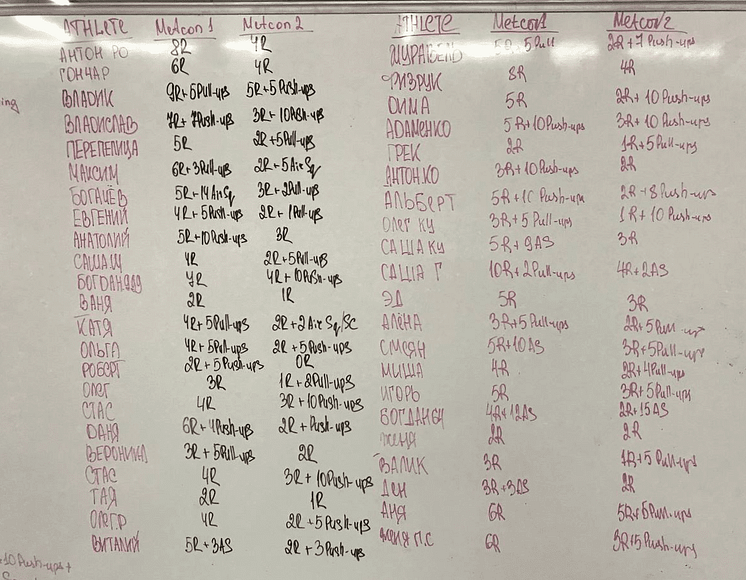 ATHLETE Metcon 1 Metcon 2
АНТОН РО 8R 4R
ГОНЧАР 6R 4R
ВЛАДИК 9R+5Pull-ups 5R+5Push-ups
ВЛАДИСЛАВ 7R+7Push-ups 3R+10Push-ups
ПЕРЕПЕЛИЦА 5R 2R+5Pull-ups
МАКСИМ 6R+3Pull-ups 2R+5Air Sq
БОГАЧЁВ 5R+14AirSq 3R+2Pull-ups
ЕВГЕНИЙ 4R+5Push-ups 2R+1Pull-ups
АНАТОЛИЙ 5R+10Push-ups 3R
САША Щ 4R 2R+5Pull-ups
БОГДАН 4R 4R+10Push-ups
ВАНЯ 2R 1R
КАТЯ 4R+5Pull-ups 2R+2Air Sq/SC
ОЛЬГА 4R+5Pull-ups 2R+5Push-ups
РОБЕРТ 2R+5Push-ups 0R
ОЛЕГ 3R 1R+2Pull-ups
СТАС 4R 3R+10Push-ups
ДАНЯ 6R+4Push-ups 2R+Push-ups
ВЕРОНИКА 3R+5Pull-ups 2R
СТАС 4R 3R+10Push-ups
ТАЯ 2R 1R
ОЛЕГР 4R 2R+5Push-ups
ВИТАЛИЙ 5R+3AS 2R+3Push-ups
ATHLETE Metcon1 Metcon 2
МУРАВЕЛЬ 5R+5Pull 2R+7Push-ups
ФИЗРУК 8R 4R
ДИМА 5R 2R+10Push-ups
АДАМЕНКО 5R+10Push-ups 3R+10Push-ups
ГРЕК 2R 1R+5Pull-ups
АНТОН.КО 3R+10Push-ups 2R
АЛЬБЕРТ 5R+10Push-ups 2R+8Push-ups
ОЛЕГ КУ 3R+5Pull-ups 1R+10Push-ups
САША КУ 5R+9AS 3R
САША Г 10R+2Pull-ups 4R+2AS
ЭД 5R 3R
АЛЁНА 3R+5Pull-ups 2R+5Pull-ups
СМЕЯН 5R+10AS 3R+5Pull-ups
МИША 4R 2R+4Pull-ups
ИГОРЬ 5R 3R+5Pull-ups
БОГДАН 4R+12AS 2R+15AS
ЖЕНЯ 2R 2R
ВАЛИК 3R 1R+5Pull-ups
ДЕН 3R+3AS 2R
АНЯ 6R 5R+5Pull-ups
ЖЕНЯ П.С 6R 3R+5Push-ups
ing
10Push-ups+